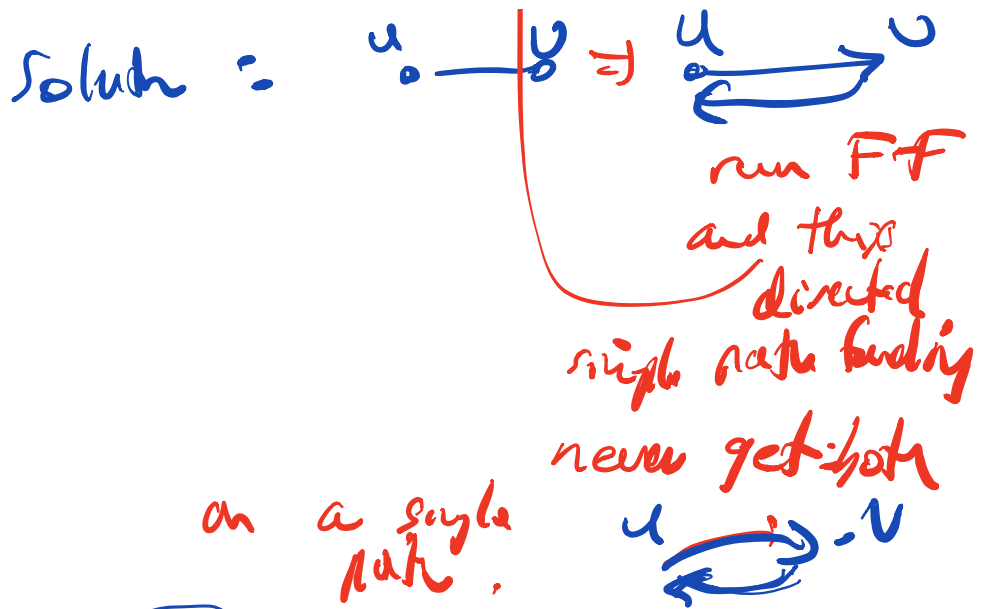 Solution : u v ⇒ u v
run FF
and this
directed
simple path finding
never get both
on a single u v
path.